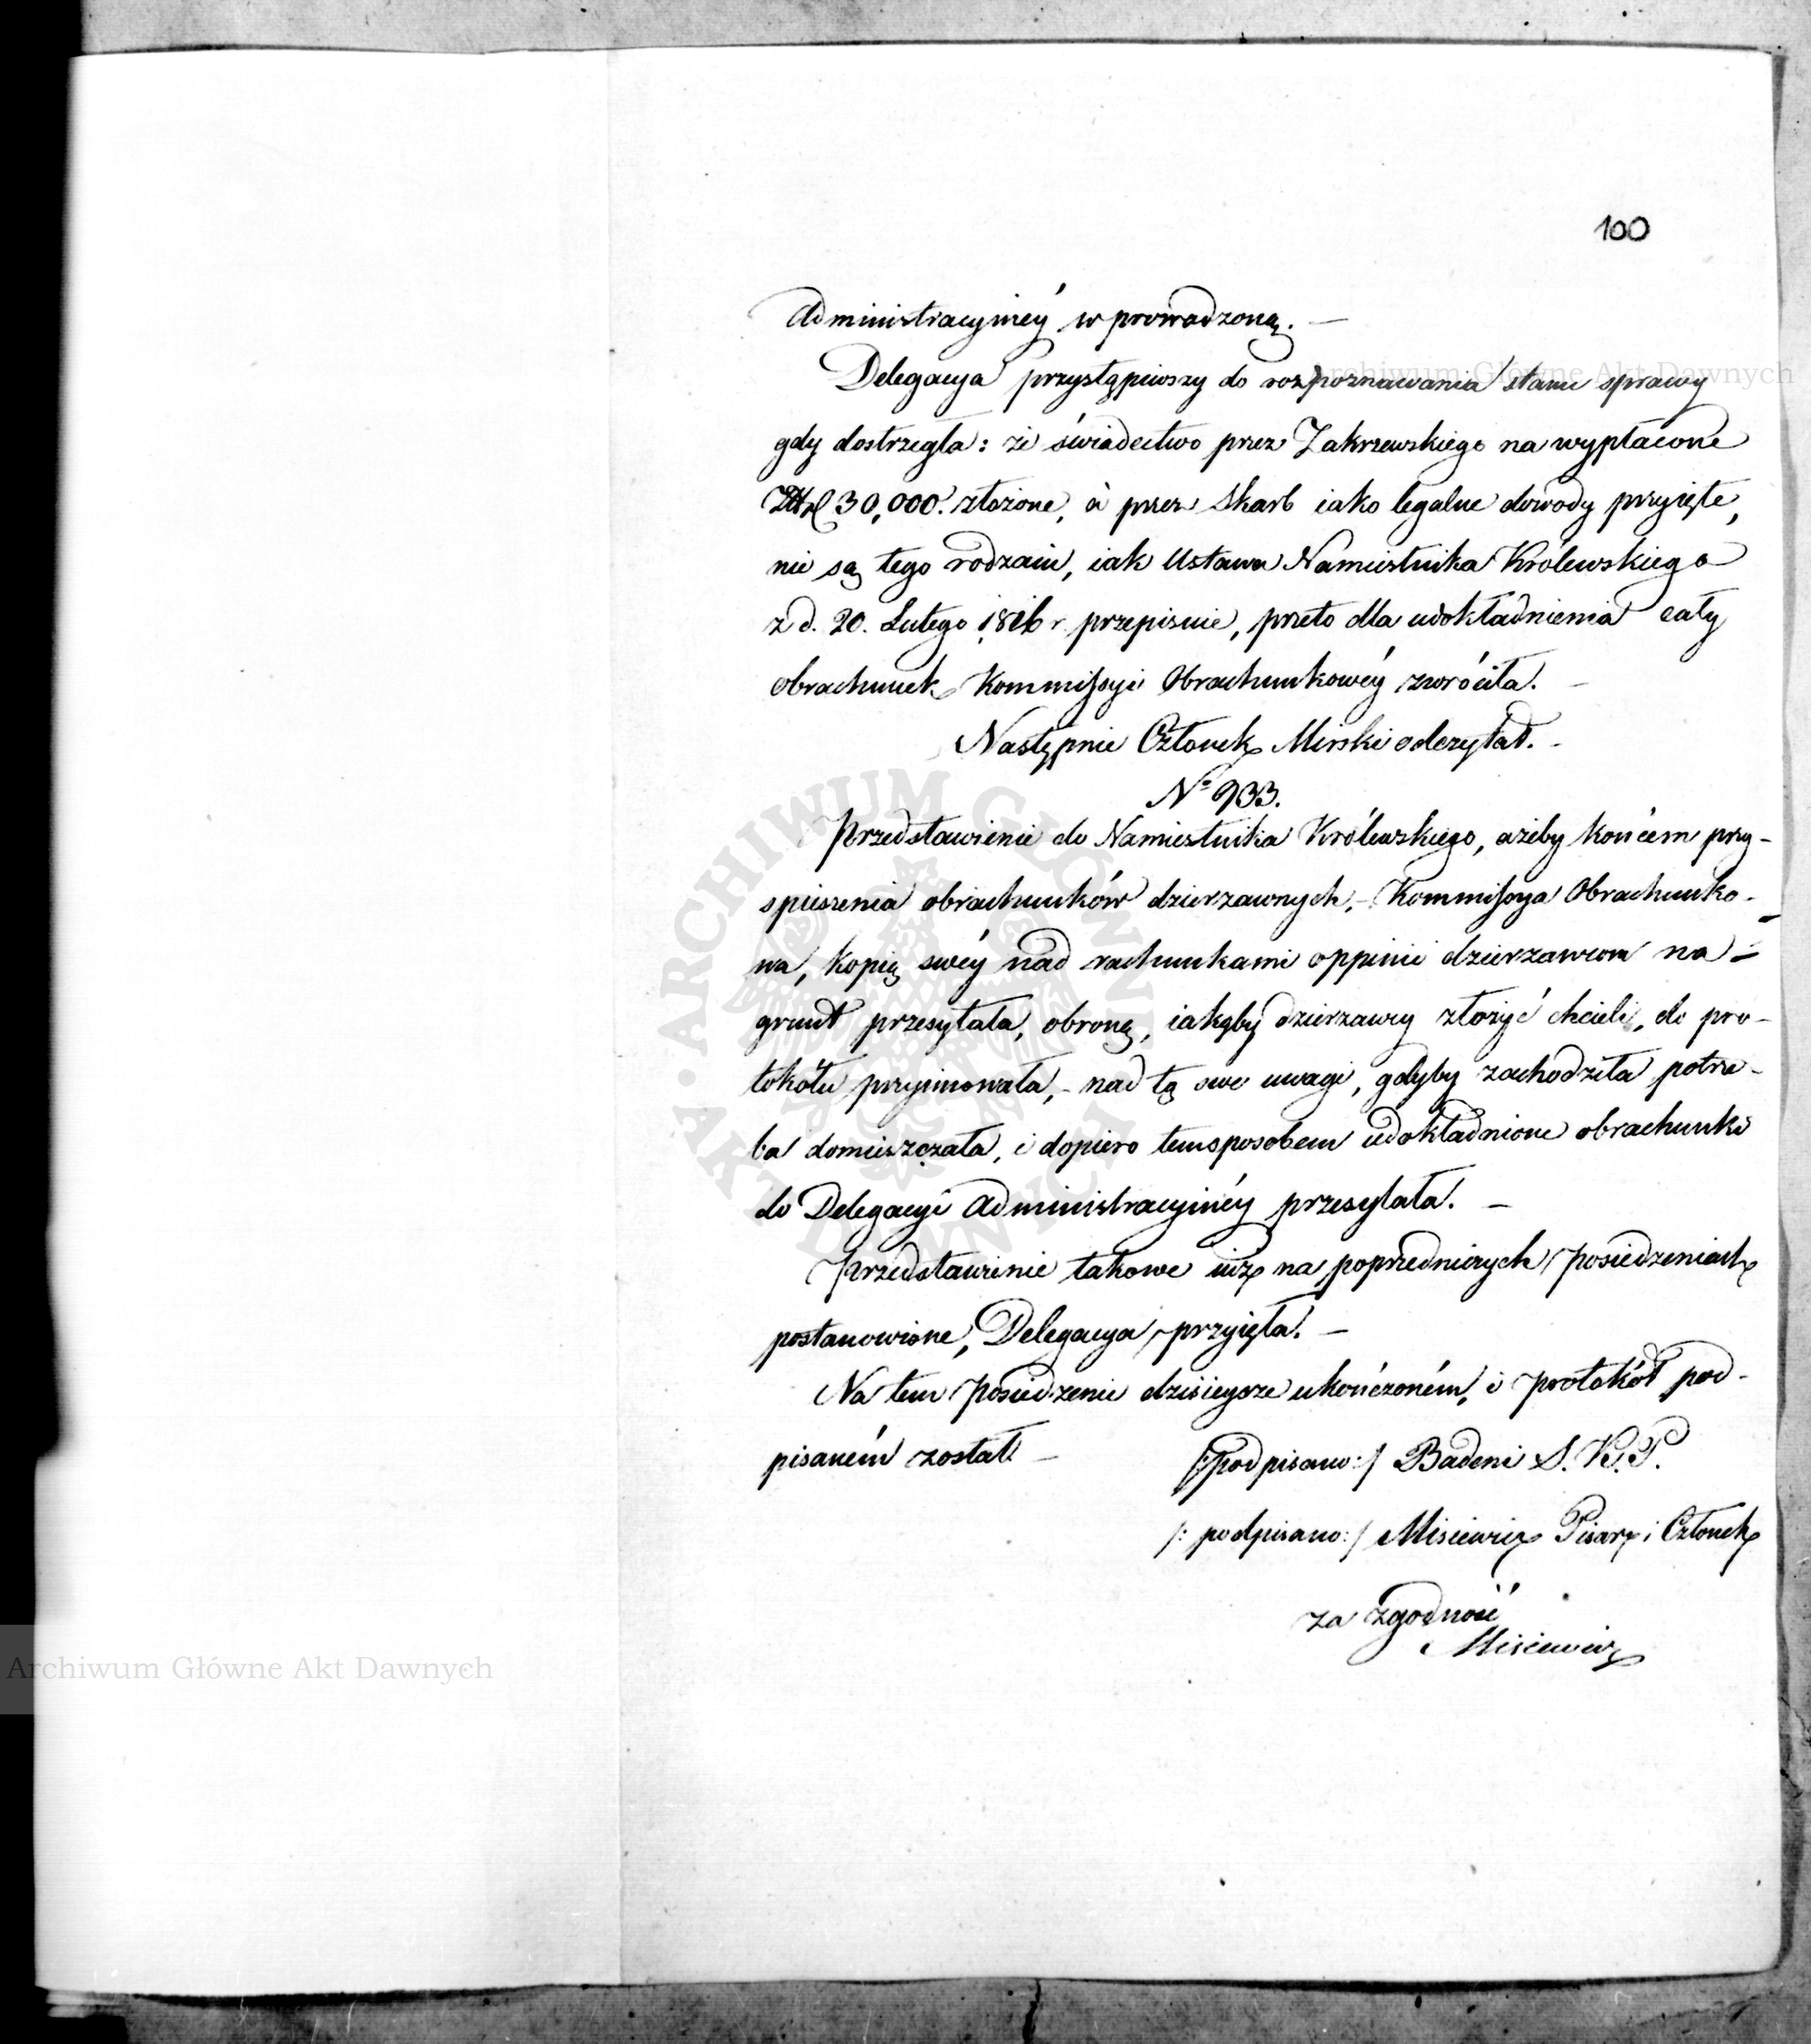 100
Administracyiney wprowadzoną. —
Delegacya przystąpiwszy do rozpoznawania stanu sprawy
gdy dostrzegła: że świadectwo przez Zakrzewskiego na wypłacone
30,000. złożone, a przez Skarb iako legalne dowody przyięte,
nie są tego rodzaiu, iak Ustawa Namiestnika Królewskiego
z d. 20. Lutego 1816 r. przepisuie, przeto dla udokładnienia cały
obrachunek Kommissyi Obrachunkowéy zwróciła. —
Następnie Członek Mirski odczytał. -
No 933.
Przedstawienie do Namiestnika Królewskiego, ażeby końcem przy-
spieszenia obrachunków dzierzawnych, - Kommissya Obrachunko-
wa, kopię swéy nad rachunkami oppinii dzierzawcom na
grunt przesyłała, obronę, iakąby dzierzawcy złożyć chcieli, do pro-
tokółu przyimowała, - nad tą swe uwagi, gdyby zachodziła potrze-
ba domieszczała, i dopiero tem sposobem udokładnione obrachunki
do Delegacyi Administracyinéy przesyłała. —
Przedstawienie takowe iuż na poprzedniczych posiedzeniach
postanowione, Delegacya przyięła. —
Na tem posiedzenie dzisieysze ukończoném, i protokół pod-
pisaném został. —
/:podpisano:/ Badeni S. K. P.
/: podpisano:/ Misiewicz Pisarz i Członek
za zgodność
Misiewicz
Archiwum Główne Akt Dawnych
Archiwum Główne Akt Dawnych
ARCHIWUM GŁÓWNE AKT DAWNYCH